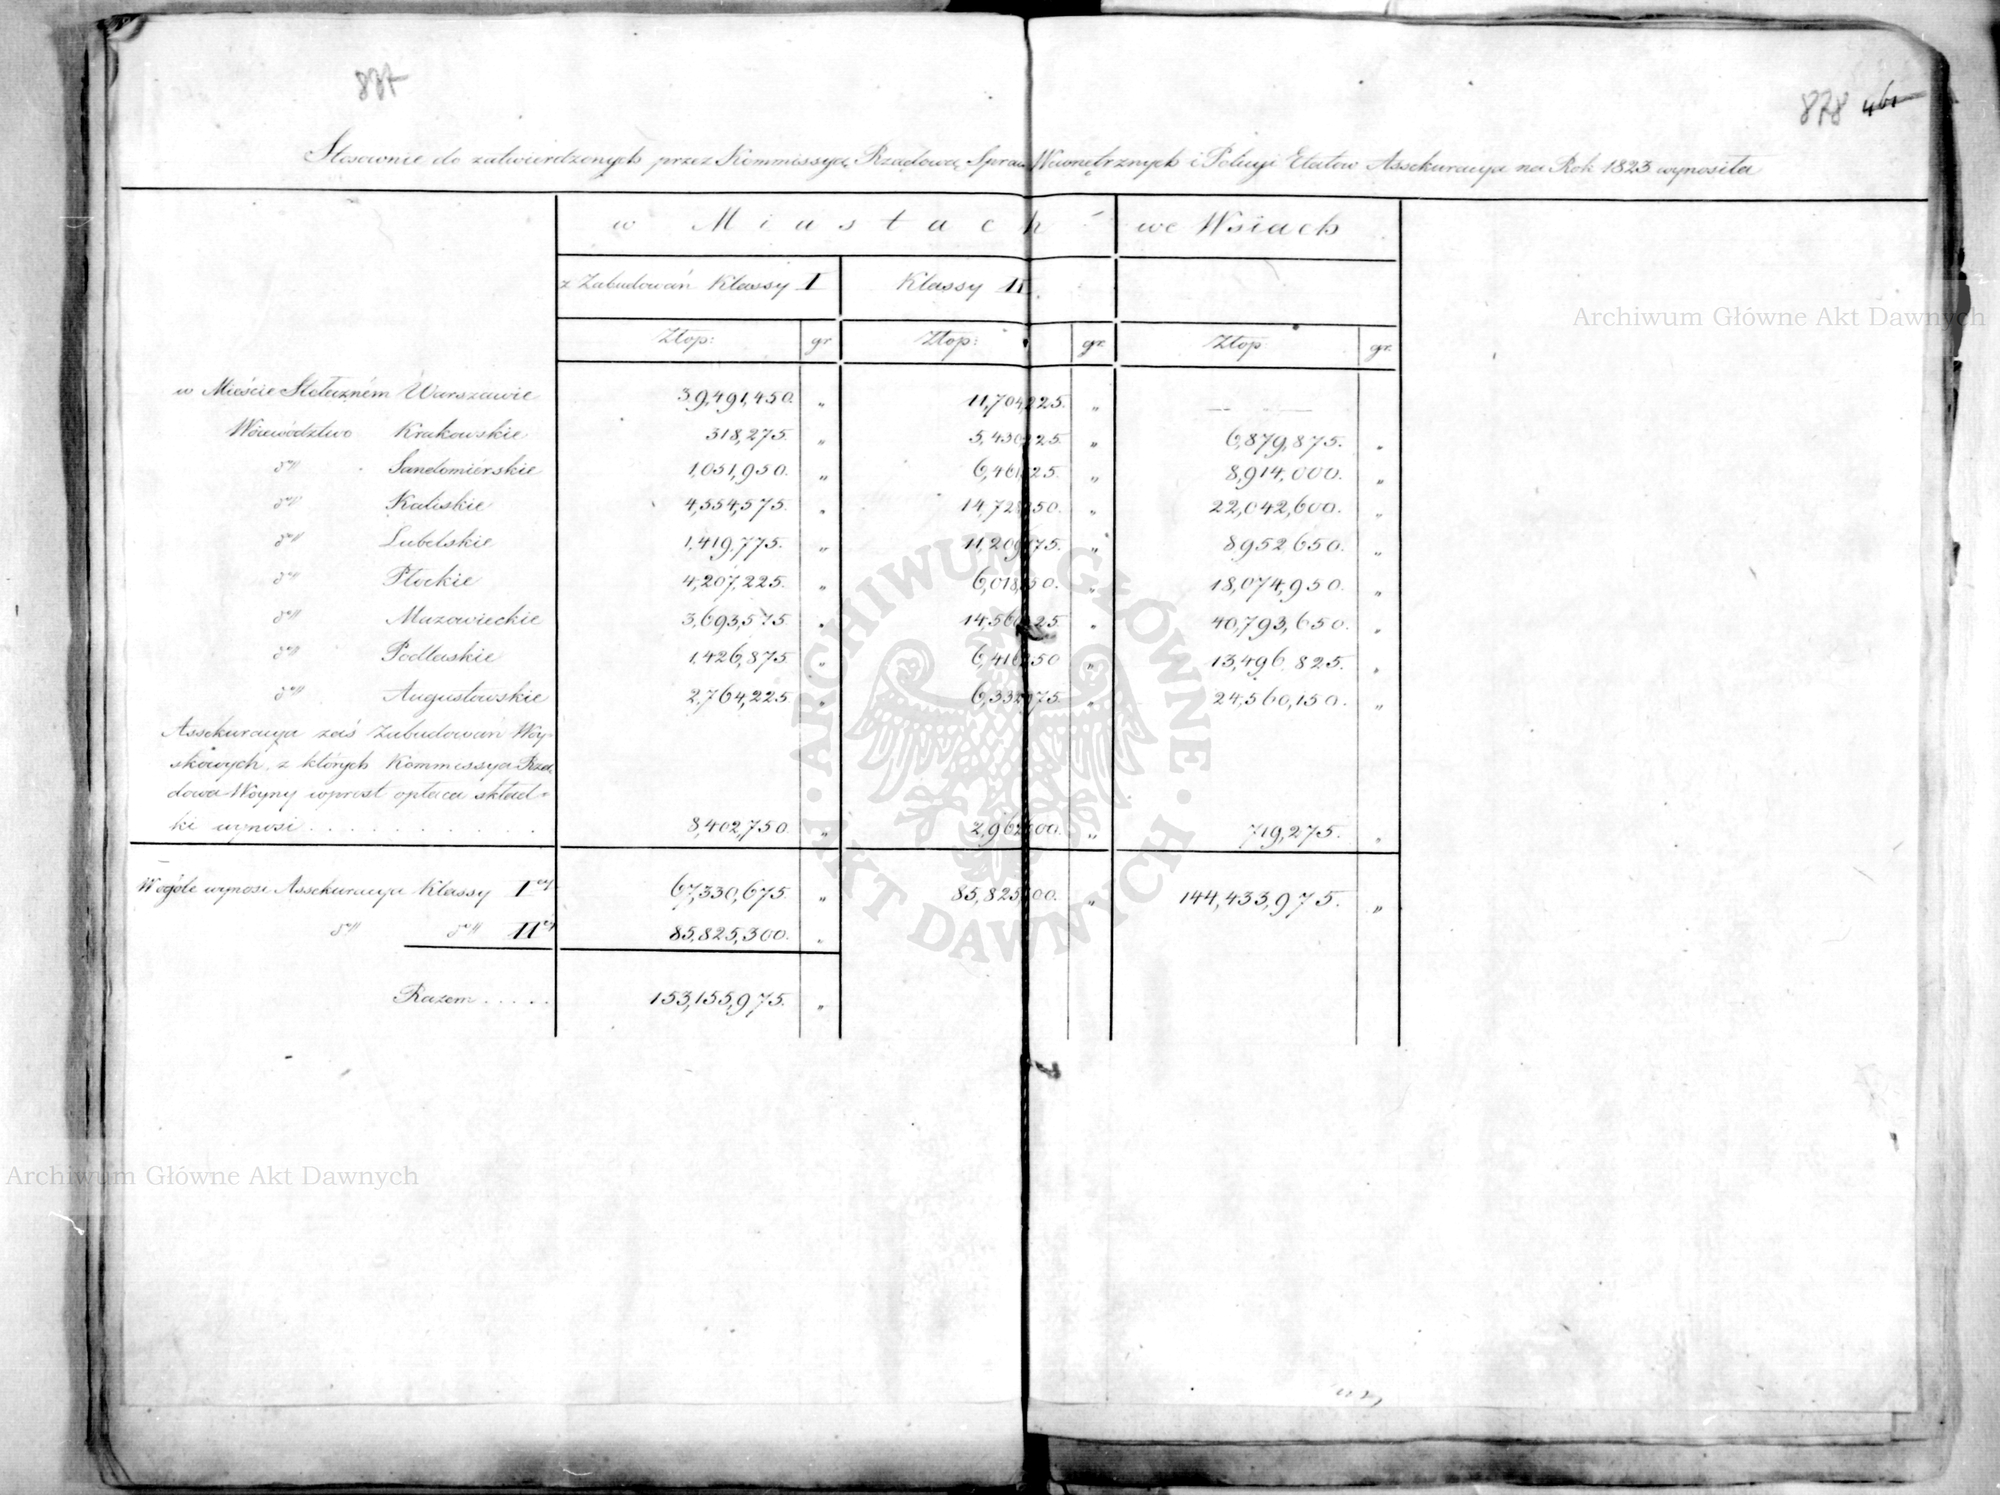 877
878 461
Stosownie do zatwierdzonych przez Kommissyą Rządową Spraw Wewnętrznych i Policyi Etatów Assekuracya na Rok 1823 wynosiła
w Miastach we Wsiach
z Zabudowań Klassy I Klassy II.
Złop: gr Złop: gr. Złop: gr.
w Mieście Stołeczném Warszawie 39,491,450. „ 11,704,225. „ — —
Woiewództwo Krakowskie 318,275. „ „ 6,879,875. „
do Sandomierskie 1,051,950. „ „ 8,914,000. „
do Kaliskie 4,554,575. „ „ 22,042,600. „
do Lubelskie 1,419,775. „ „ 8,952,650. „
do Płockie 4,207,225. „ „ 18,074,950. „
do Mazowieckie 3,693,575. „ „ 40,793,650. „
do Podlaskie 1,426,875. „ „ 13,496,825. „
do Augustowskie 2,764,225. „ „ 24,560,150. „
Assekuracya zaś Zabudowań Woy-
skowych, z których Kommissya Rzą-
dowa Woyny wprost opłaca skład-
ki wynosi . . . . . . . . . . 8,402,750. „ „ 719,275. „
Wogóle wynosi Assekuracya Klassy Iey 67,330,675. „ 85,825,300. „ 144,433,975. „
do do IIey 85,825,300. „
Razem . . . . . 153,155,975. „
Archiwum Główne Akt Dawnych
Archiwum Główne Akt Dawnych
ARCHIWUM GŁÓWNE • AKT DAWNYCH •